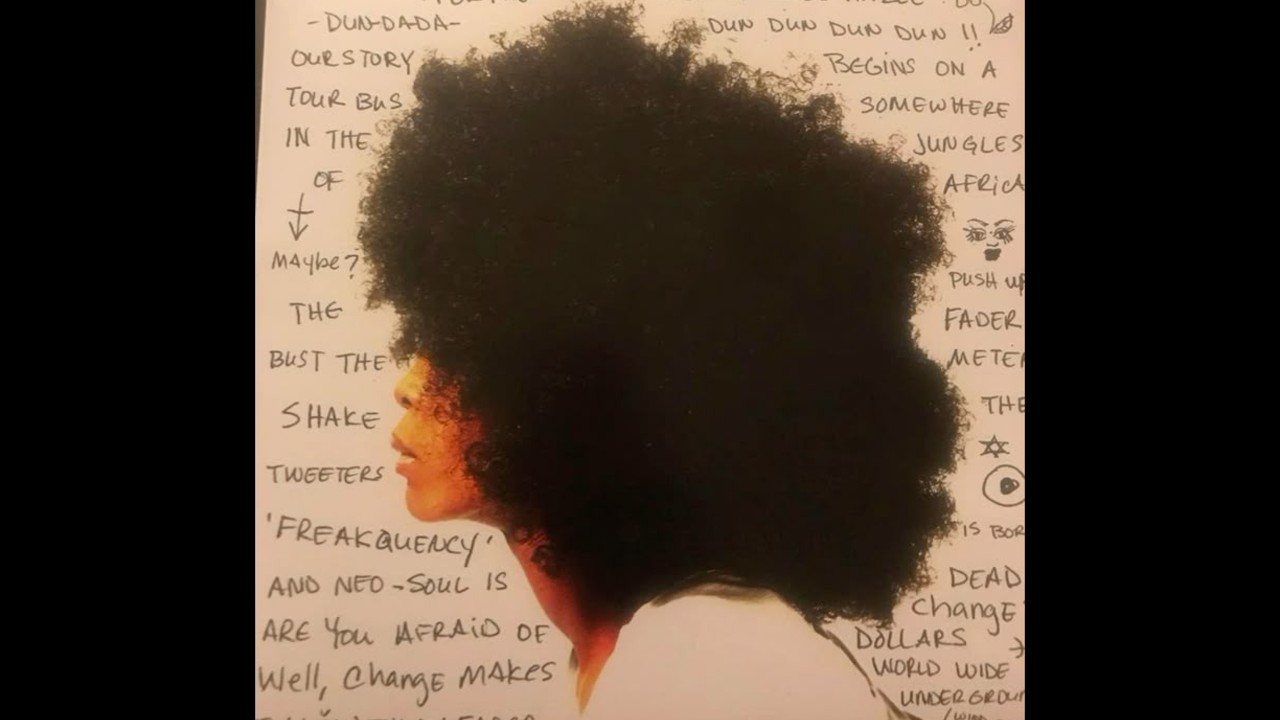 -DUN-DADA- DUN DUN DUN DUN !!
OUR STORY BEGINS ON A
TOUR BUS SOMEWHERE
IN THE JUNGLES
OF AFRICA
MAybe?
PUSH UP
THE FADER
BUST THE METER
SHAKE THE
TWEETERS
'FREAKQUENCY' IS BOR
AND NEO-SOUL IS DEAD
ARE YOU AFRAID OF Change
Well, Change MAKES DOLLARS
WORLD WIDE
UNDERGROUN